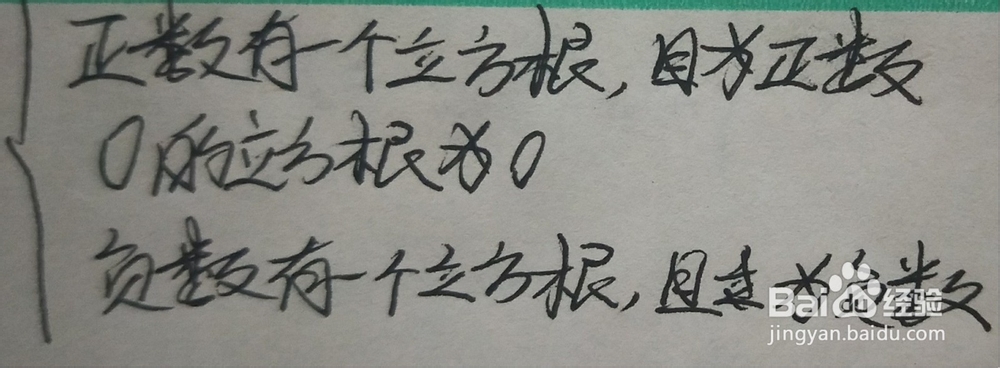 正数有一个立方根,且为正数
0的立方根为0
负数有一个立方根,且为负数
Baidu经验
jingyan.baidu.com